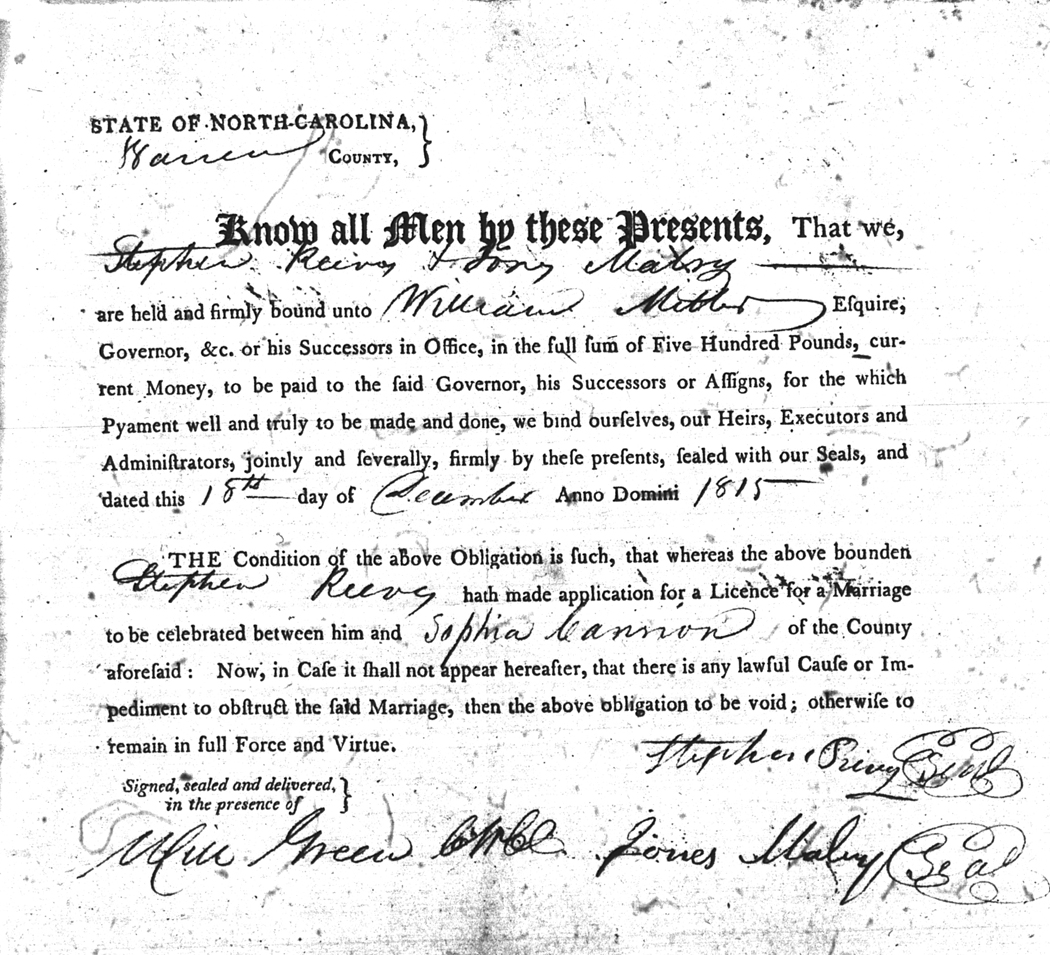 STATE OF NORTH-CAROLINA,
Warren COUNTY,
Know all Men by these Presents, That we,
Stephen Reevy & Jones Malry
are held and firmly bound unto William Miller Eſquire,
Governor, &c. or his Successors in Office, in the full ſum of Five Hundred Pounds, cur-
rent Money, to be paid to the ſaid Governor, his Successors or Aſſigns, for the which
Pyament well and truly to be made and done, we bind ourſelves, our Heirs, Executors and
Adminiſtrators, jointly and ſeverally, firmly by theſe preſents, ſealed with our Seals, and
dated this 18th day of December Anno Domini 1815
THE Condition of the above Obligation is ſuch, that whereas the above bounden
Stephen Reevy hath made application for a Licence for a Marriage
to be celebrated between him and Sophia Cannon of the County
aforeſaid: Now, in Caſe it ſhall not appear hereafter, that there is any lawful Cauſe or Im-
pediment to obſtruct the ſaid Marriage, then the above obligation to be void; otherwiſe to
remain in full Force and Virtue.
Stephen Seal
Signed, sealed and delivered,
in the presence of
Will Green Jones Malry Seal